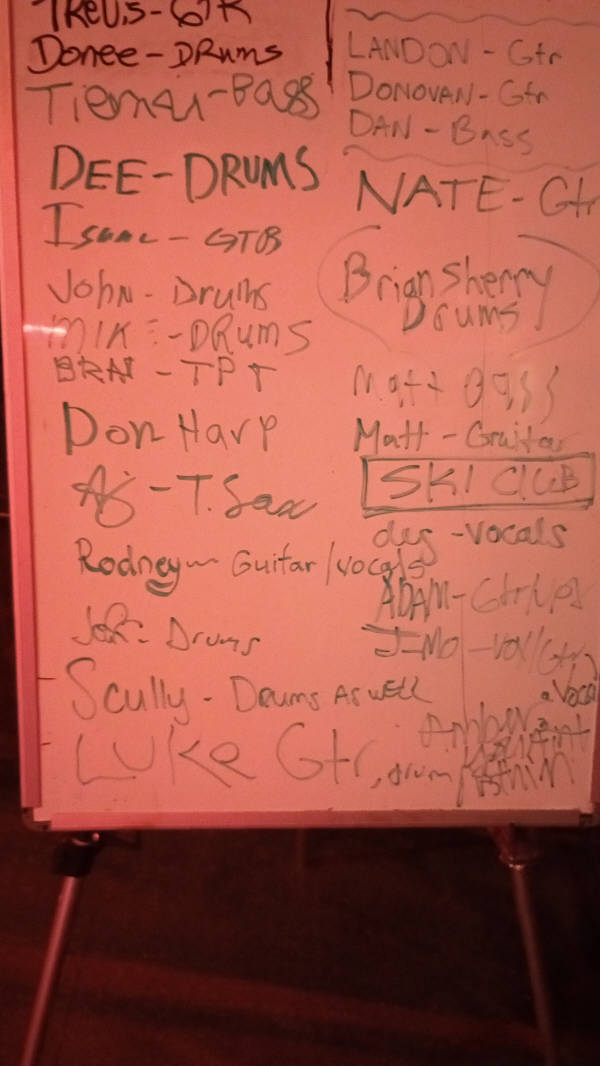 TREVIS-GTR
Donee-DRums
Tiemai-Bass
DEE-DRUMS
Isaac - GTB
John - Drums
MIKE -DRUMS
BRAI - TPT
Don Harp
Aj - T. Sax
Rodney - Guitar/vocals
Drums
Scully - Drums AS WELL
LUKE Gtr, drum
LANDON - Gtr
DONOVAN - Gtr
DAN - Bass
NATE - Gtr
Brian Sherry
Drums
Matt Bass
Matt - Guitar
SKI CLUB
des - vocals
ADAM - Gtr/Vox
J-MO - VOX/Gtr
Vocal
Amber